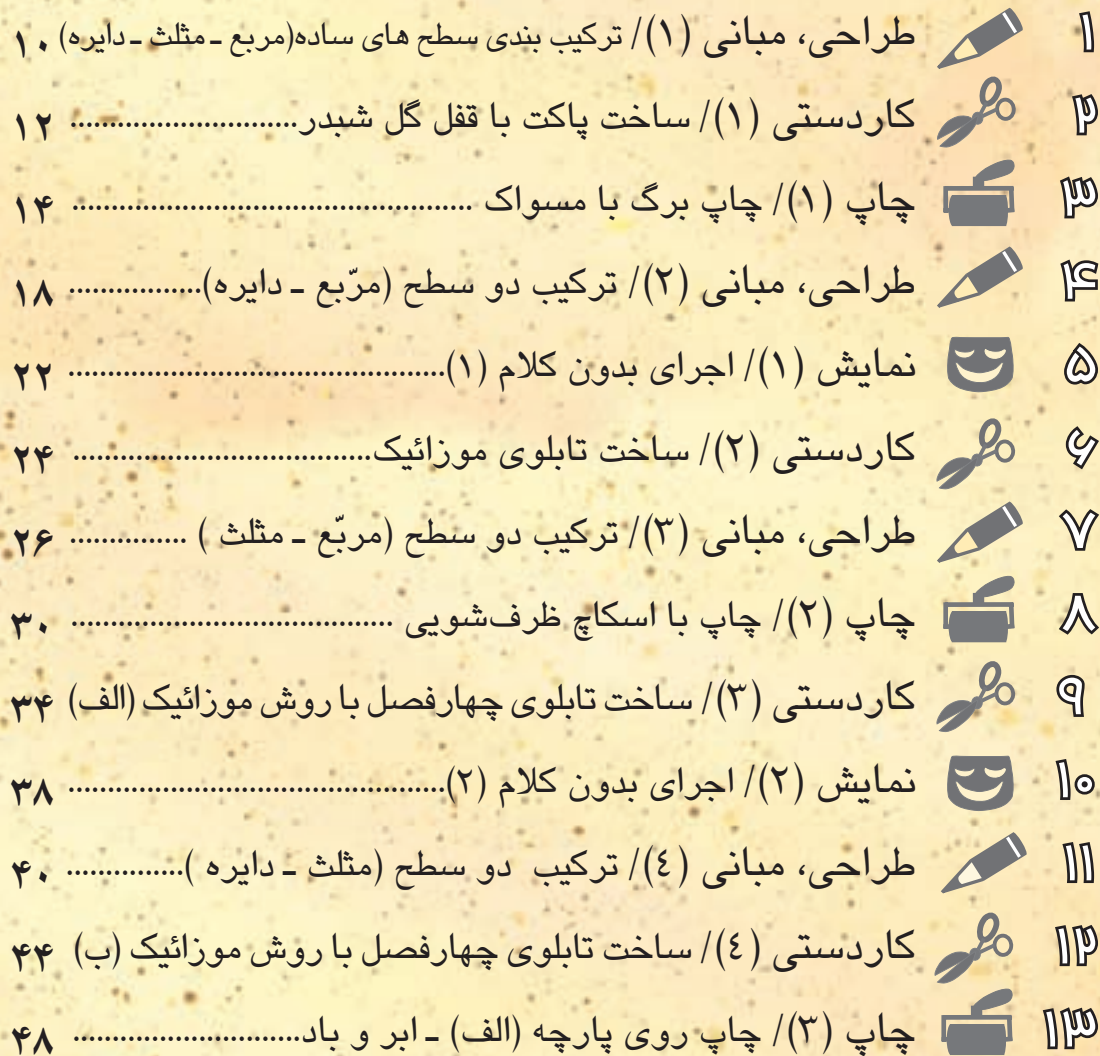 ۱ طراحی، مبانی (۱)/ ترکیب بندی سطح های ساده(مربع ـ مثلث ـ دایره) ۱۰
۲ کاردستی (۱)/ ساخت پاکت با قفل گل شبدر............................. ۱۲
۳ چاپ (۱)/ چاپ برگ با مسواک .................................................... ۱۴
۴ طراحی، مبانی (۲)/ ترکیب دو سطح (مرّبع ـ دایره)................. ۱۸
۵ نمایش (۱)/ اجرای بدون کلام (۱)................................................ ۲۲
۶ کاردستی (۲)/ ساخت تابلوی موزائیک...................................... ۲۴
۷ طراحی، مبانی (۳)/ ترکیب دو سطح (مربّع ـ مثلث ) ............... ۲۶
۸ چاپ (۲)/ چاپ با اسکاچ ظرف‌شویی ......................................... ۳۰
۹ کاردستی (۳)/ ساخت تابلوی چهارفصل با روش موزائیک (الف) ۳۴
۱۰ نمایش (۲)/ اجرای بدون کلام (۲)................................................ ۳۸
۱۱ طراحی، مبانی (٤)/ ترکیب دو سطح (مثلث ـ دایره )............... ۴۰
۱۲ کاردستی (٤)/ ساخت تابلوی چهارفصل با روش موزائیک (ب) ۴۴
۱۳ چاپ (۳)/ چاپ روی پارچه (الف) ـ ابر و باد............................. ۴۸